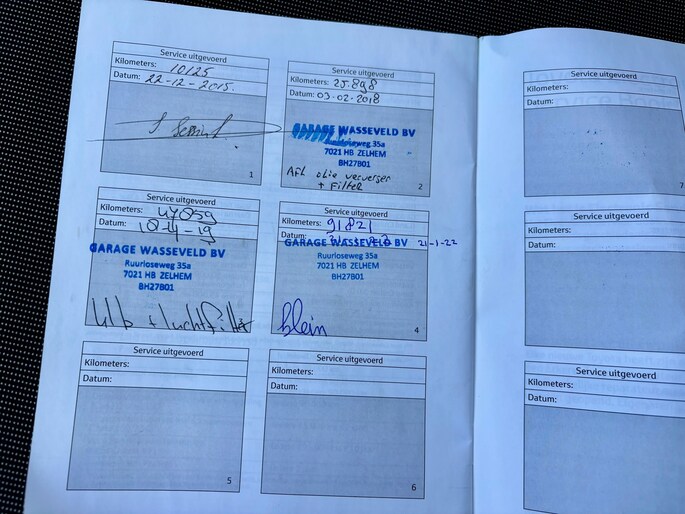 Service uitgevoerd
Kilometers: 10125
Datum: 22-12-2015.
1
Service uitgevoerd
Kilometers: 25.898
Datum: 03-02-2018
GARAGE WASSEVELD BV
Ruurloseweg 35a
7021 HB ZELHEM
BH27B01
Afl olie verversen
+ Filter
2
Service uitgevoerd
Kilometers: 47059
Datum: 18-4-19
GARAGE WASSEVELD BV
Ruurloseweg 35a
7021 HB ZELHEM
BH27B01
+ luchtfilter
Service uitgevoerd
Kilometers: 91821
Datum:
GARAGE WASSEVELD BV 21-1-22
Ruurloseweg 35a
7021 HB ZELHEM
BH27B01
klein
4
Service uitgevoerd
Kilometers:
Datum:
5
Service uitgevoerd
Kilometers:
Datum:
6
Service uitgevoerd
Kilometers:
Datum:
7
Service uitgevoerd
Kilometers:
Datum:
Service uitgevoerd
Kilometers:
Datum: